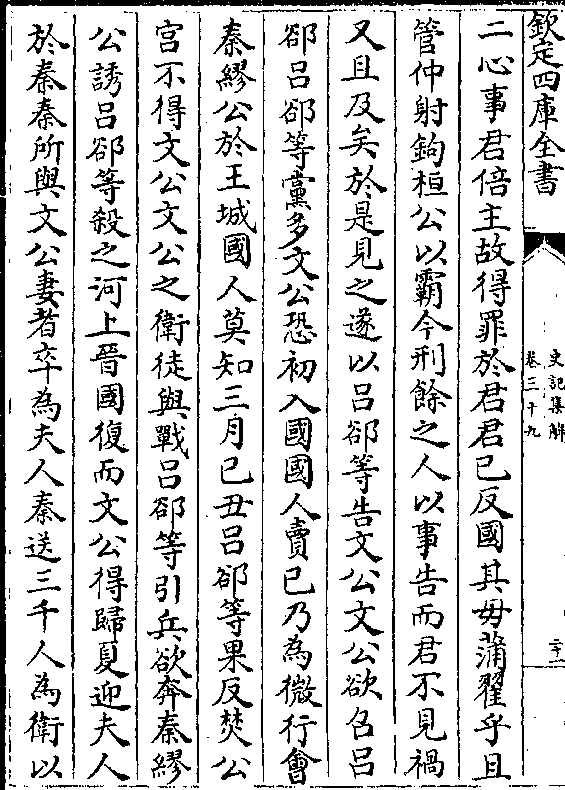 欽定四庫全書
史記集解
卷三十九
二十一
二心事君倍主故得罪於君君已反國其毋蒲翟乎且
管仲射鉤桓公以霸今刑餘之人以事告而君不見禍
又且及矣於是見之遂以呂郤等告文公文公欲召呂
郤呂郤等黨多文公恐初入國國人賣已乃為微行會
秦繆公於王城國人莫知三月己丑呂郤等果反焚公
宮不得文公文公之衛徒與戰呂郤等引兵欲奔秦繆
公誘呂郤等殺之河上晉國復而文公得歸夏迎夫人
於秦秦所與文公妻者卒為夫人秦送三千人為衛以